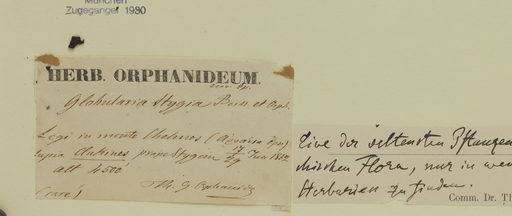 München
Zugegangen 1980
HERB. ORPHANIDEUM.
Globularia Stygia Boiss et Orph.
Legi in monte Chelmos (
supra prope Stygem Jun
alt 4500'
(rare) Th. G. Orphanides
Eine der seltensten Pflanzen
chischen Flora, nur in wen
Herbarien zu finden.
Comm. Dr. Th